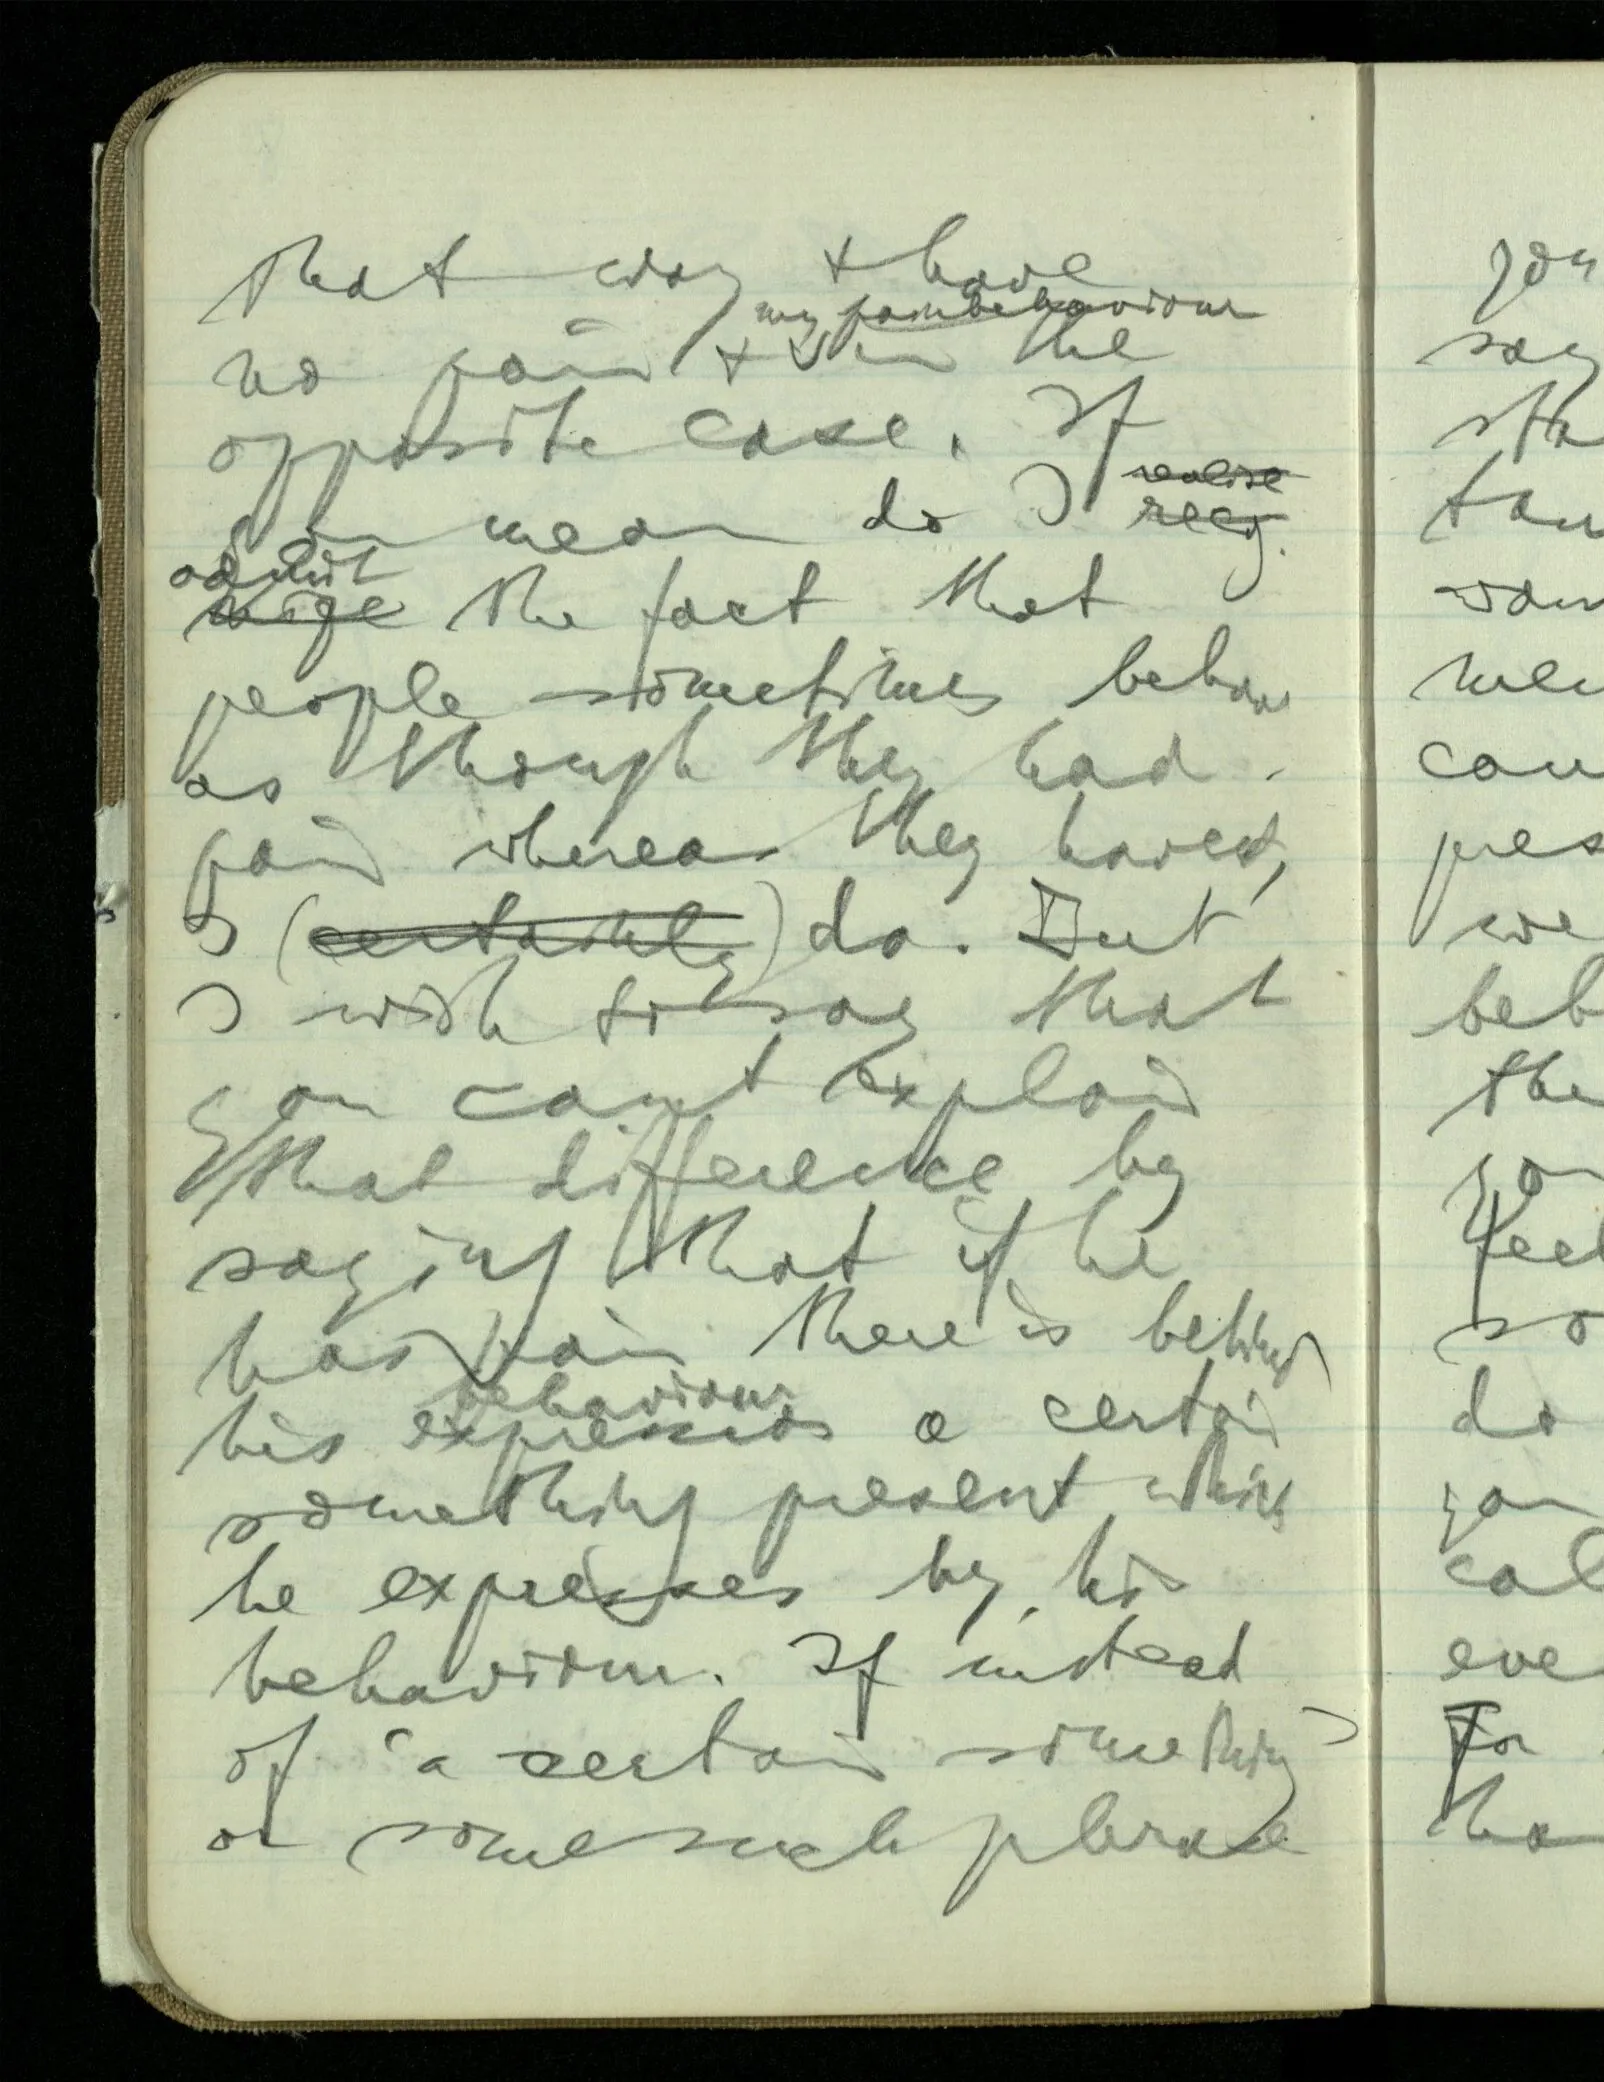 that way & have
my painbehaviour
no pain & in the
opposite case. If
you mean do I realise recog-
admit
nize the fact that
people sometimes behave
as though they had
pain whereas they havent,
I (certainly) do. But
I wish to say that
you can't explain
that difference by
saying that if he
has pain there is behind
behaviour
his expression a certain
something present which
he expresses by his
behaviour. If instead
of 'a certain something'
or some such phrase
you
say
the